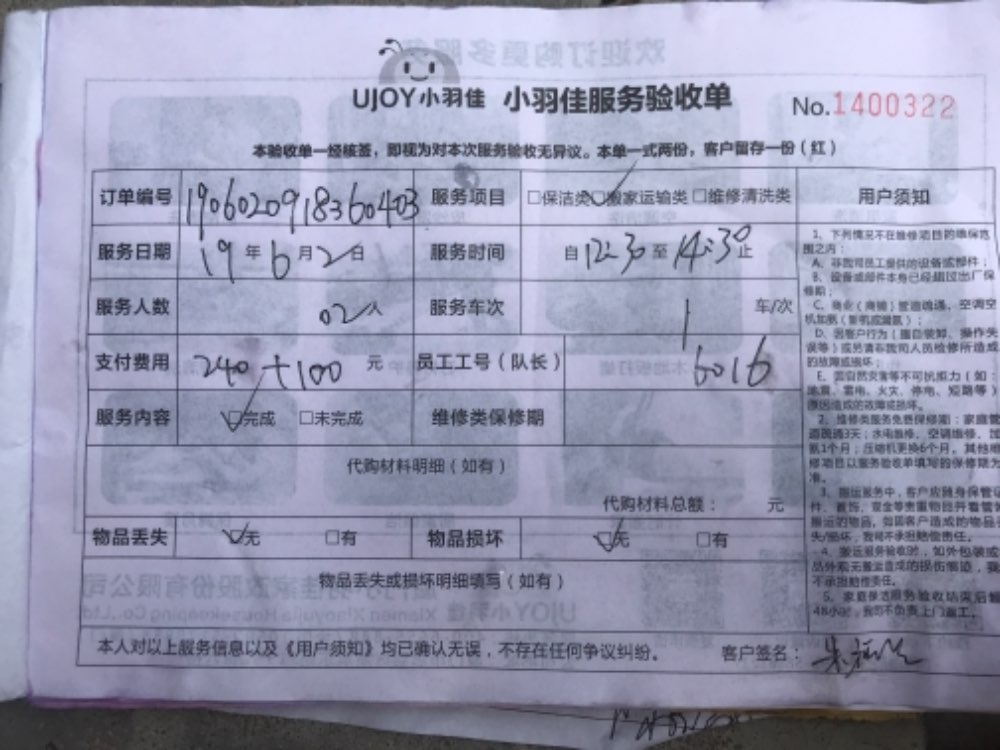 UJOY小羽佳 小羽佳服务验收单 No.1400322
本验收单一经核签，即视为对本次服务验收无异议。本单一式两份，客户留存一份（红）
订单编号 1906020918360403 服务项目 □保洁类 □搬家运输类 □维修清洗类 用户须知
服务日期 19年6月2日 服务时间 自12:30至14:30止
服务人数 02人 服务车次 1 车/次
支付费用 240+100 元 员工工号（队长） 6016
服务内容 □完成 □未完成 维修类保修期
代购材料明细（如有）
代购材料总额： 元
物品丢失 □无 □有 物品损坏 □无 □有
物品丢失或损坏明细填写（如有）
本人对以上服务信息以及《用户须知》均已确认无误，不存在任何争议纠纷。 客户签名：
1、下列情况不在维修项目的维保范
围之内：
A、非我司员工提供的设备或部件；
B、设备或部件本身已经超过出厂保
修期；
C、商业（商铺）管道疏通，空调空
机加氨（新机或漏氨）；
D、因客户行为（擅自装卸、操作失
误等）或另请非我司人员检修所造成
的故障或损坏；
E、因自然灾害等不可抗拒力（如：
地震、雷电、火灾、停电、短路等）
原因造成的故障或损坏。
2、维修类服务免费保修期：家庭管
道疏通3天；水电维修、空调维修、加
氨1个月；压缩机更换6个月，其他维
修项目以服务验收单填写的保修期为
准。
3、搬运服务中，客户应随身保管
件、首饰、现金等贵重物品并看管
搬运的物品，如因客户造成的物品
失/损坏，我司不承担赔偿责任。
4、搬运服务验收时，如外包装或
品外观无搬运造成的损伤痕迹，我
不承担赔偿责任。
5、家庭保洁服务验收结束后
48小时，我司不负责上门返工。